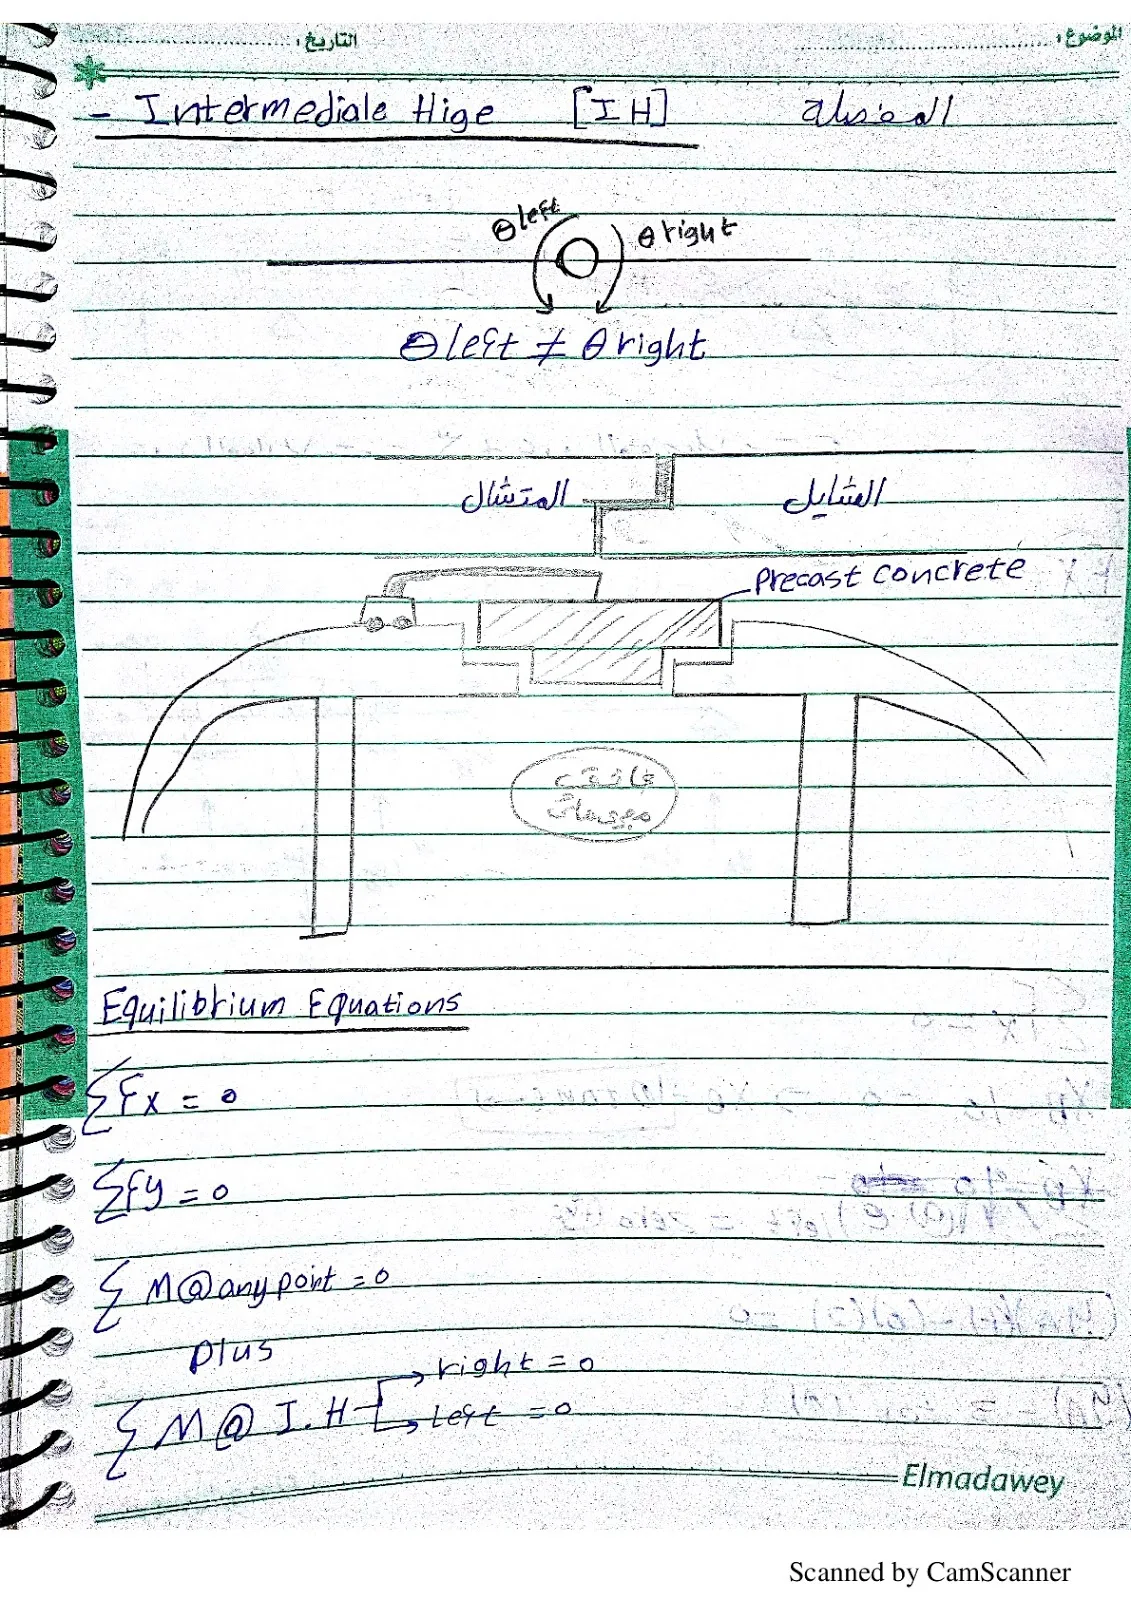 الموضوع: التاريخ:
- Intermediale Hige [IH] المفصلة
θ left θ right
θ left ≠ θ right
المتشال الشايل
precast concrete
Equilibrium Equations
∑Fx = 0
∑Fy = 0
∑ M@any point = 0
plus
right = 0
∑ M @ I.H
left = 0
Elmadawey
Scanned by CamScanner